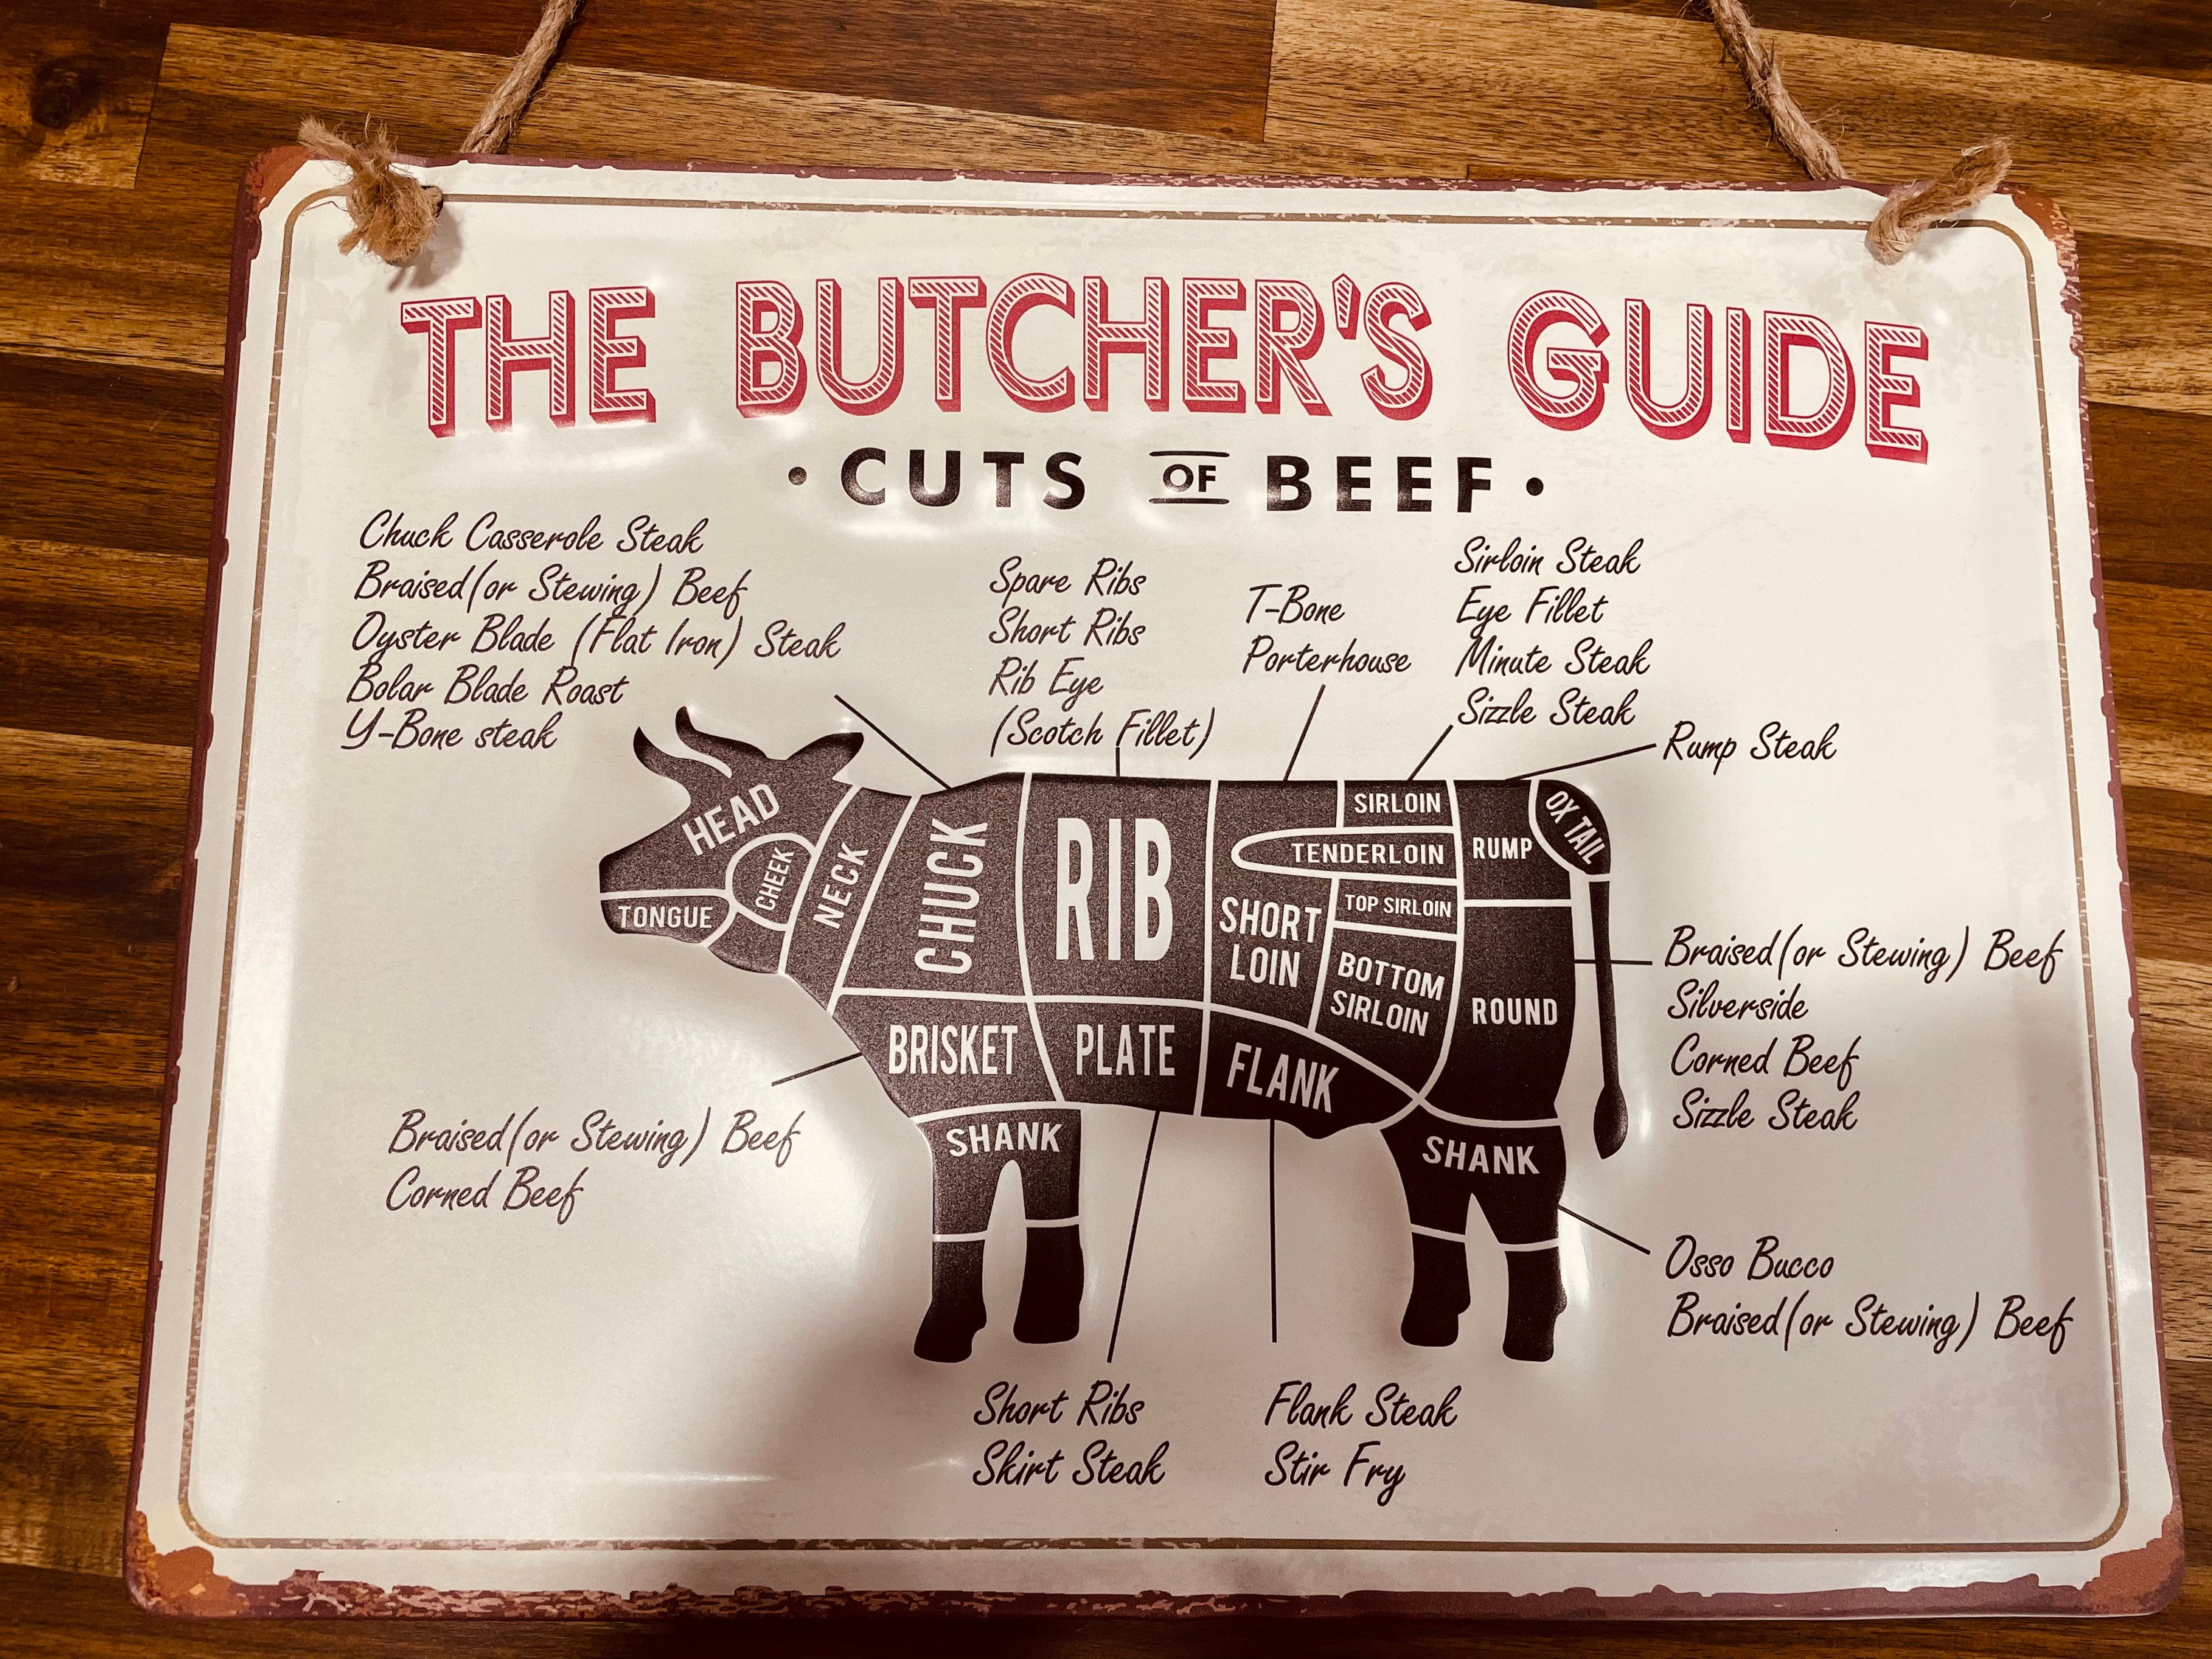 THE BUTCHER'S GUIDE
• CUTS OF BEEF •
Chuck Casserole Steak
Braised (or Stewing) Beef
Oyster Blade (Flat Iron) Steak
Bolar Blade Roast
Y-Bone steak
Spare Ribs
Short Ribs
Rib Eye
(Scotch Fillet)
T-Bone
Porterhouse
Sirloin Steak
Eye Fillet
Minute Steak
Sizzle Steak
Rump Steak
HEAD
CHEEK
TONGUE
NECK
CHUCK
RIB
SHORT
LOIN
SIRLOIN
TENDERLOIN
TOP SIRLOIN
BOTTOM
SIRLOIN
RUMP
OX TAIL
ROUND
BRISKET
PLATE
FLANK
SHANK
SHANK
Braised (or Stewing) Beef
Silverside
Corned Beef
Sizzle Steak
Braised (or Stewing) Beef
Corned Beef
Osso Bucco
Braised (or Stewing) Beef
Short Ribs
Skirt Steak
Flank Steak
Stir Fry